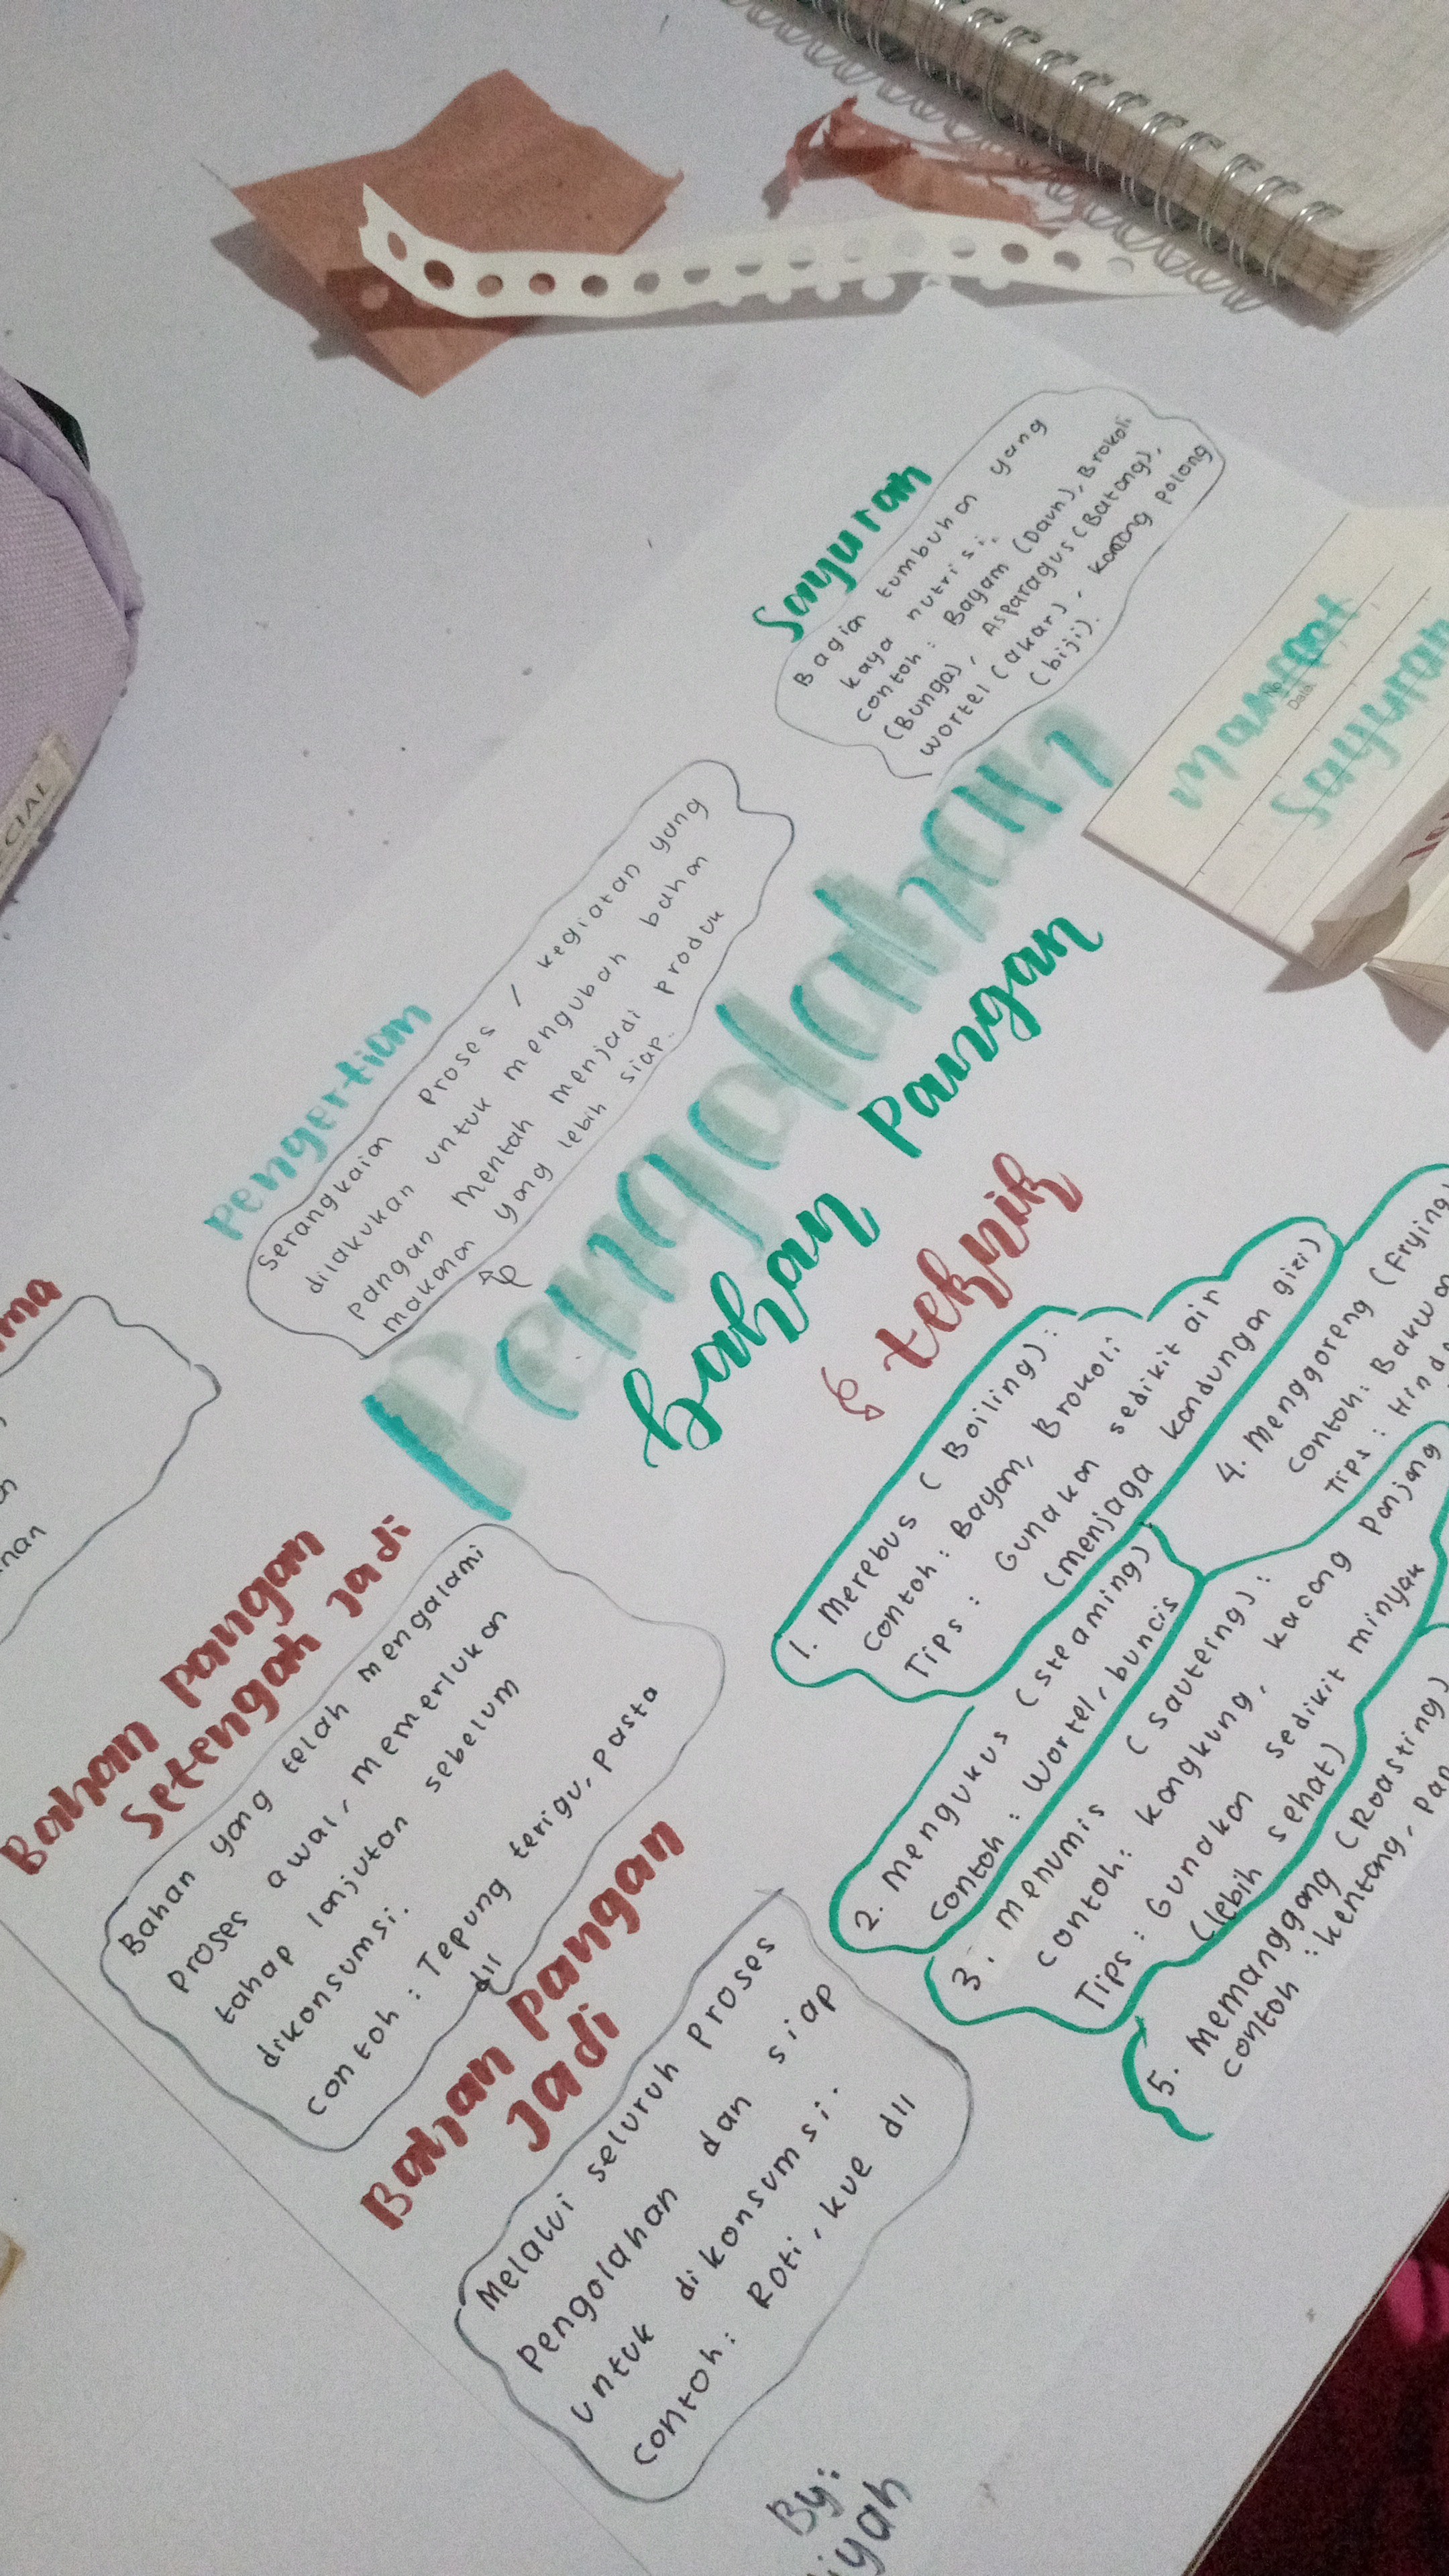 Sayuran
Bagian tumbuhan yang
kaya nutrisi.
contoh : Bayam (Daun), Brokoli
(Bunga), Asparagus (Batang),
wortel (akar), kacang polong
(biji).
manfaat
Sayuran
No
Date
Pengertian
Serangkaian Proses / kegiatan yang
dilakukan untuk mengubah bahan
pangan mentah menjadi produk
makanan yang lebih siap.
Pengolahan
bahan Pangan
teknik
1. Merebus ( Boiling) :
contoh : Bayam, Brokoli
Tips : Gunakan sedikit air
(menjaga kandungan gizi)
2. Mengukus (steaming)
contoh : Wortel, buncis
3. menumis (sautering) :
contoh: kangkung, kacang Panjang
Tips : Gunakan sedikit minyak
(lebih sehat)
4. Menggoreng (Frying)
contoh: Bakwan
Tips :
5. Memanggang (Roasting)
contoh : kentang,
Bahan pangan
Setengah Jadi
Bahan yang telah mengalami
Proses awal, memerlukan
tahap lanjutan sebelum
dikonsumsi.
contoh : Tepung terigu, Pasta
dll
Bahan pangan
Jadi
Melalui seluruh Proses
Pengolahan dan siap
untuk dikonsumsi.
contoh: Roti, kue dll
By:
iyah
CIAL